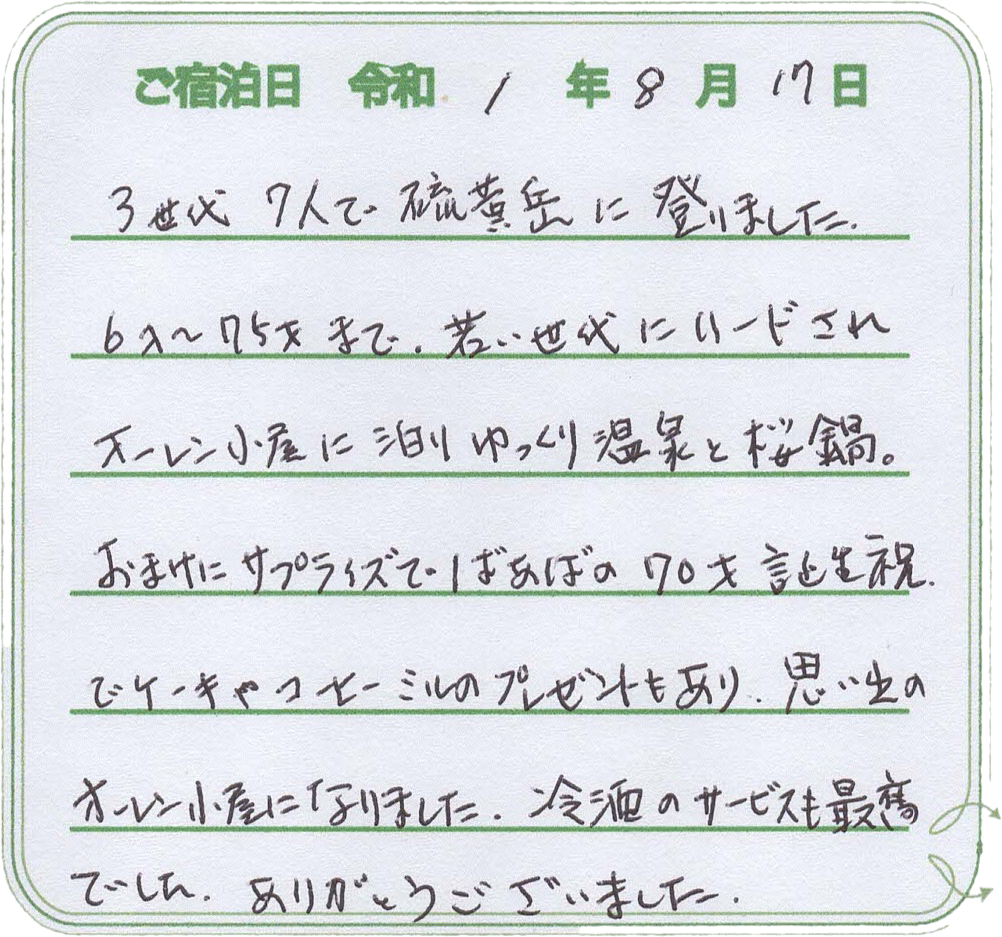 ご宿泊日 令和 1 年 8 月 17 日
3世代 7人で 硫黄岳に 登りました.
6才～75才まで. 若い世代にリードされ
オーレン小屋に泊りゆっくり温泉と桜鍋。
おまけにサプライズでばあばの70才誕生祝.
でケーキやコーヒーミルのプレゼントもあり. 思い出の
オーレン小屋になりました. 冷酒のサービスも最高
でした. ありがとうございました.